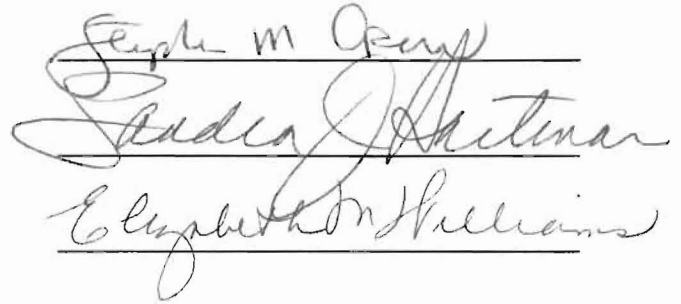 Stephen M
Sandra J Hartman
Elizabeth M Williams